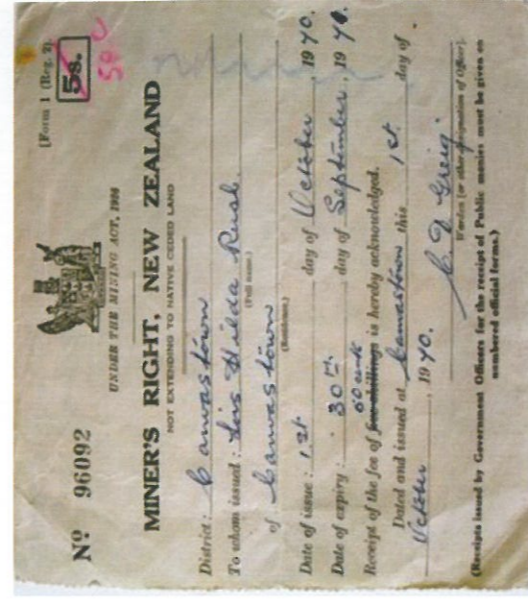 [Form 1 (Reg. 2).
5s.
50 c
UNDER THE MINING ACT, 1926
Nº 96092
MINER'S RIGHT, NEW ZEALAND
NOT EXTENDING TO NATIVE CEDED LAND
District: Canvastown
To whom issued: Hilda Rush.
(Full name.)
of Canvastown
(Residence.)
Date of issue: 1st day of October, 1970.
Date of expiry: 30th day of September, 1971.
Receipt of the fee of five shillings 50 cents is hereby acknowledged.
Dated and issued at Canvastown this 1st day of
October, 1970.
C. D. Greig
Warden [or other designation of Officer].
(Receipts issued by Government Officers for the receipt of Public monies must be given on
numbered official forms.)